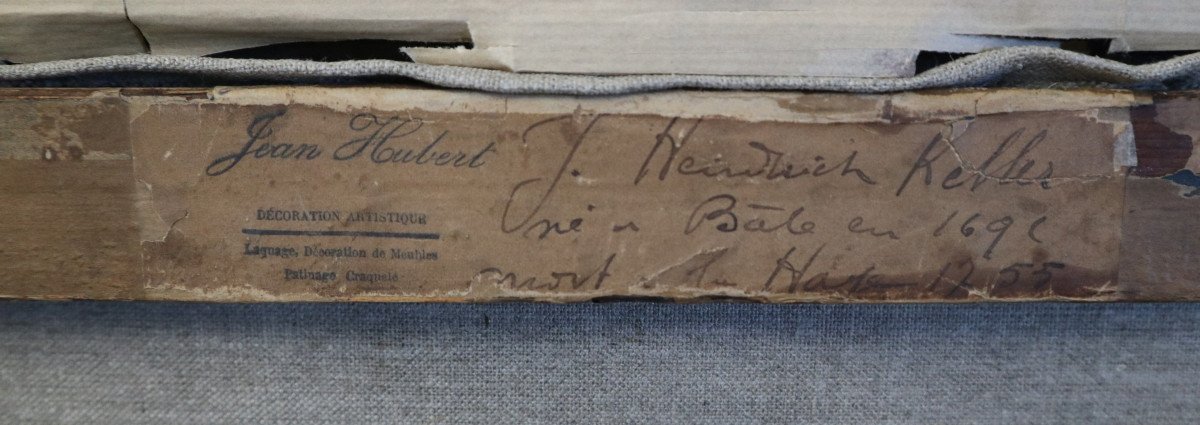 Jean Hubert
DÉCORATION ARTISTIQUE
Laquage, Décoration de Meubles
Patinage Craquelé
J. Heindrich Keller
né a Bâle en 169
mort La Haye 1755